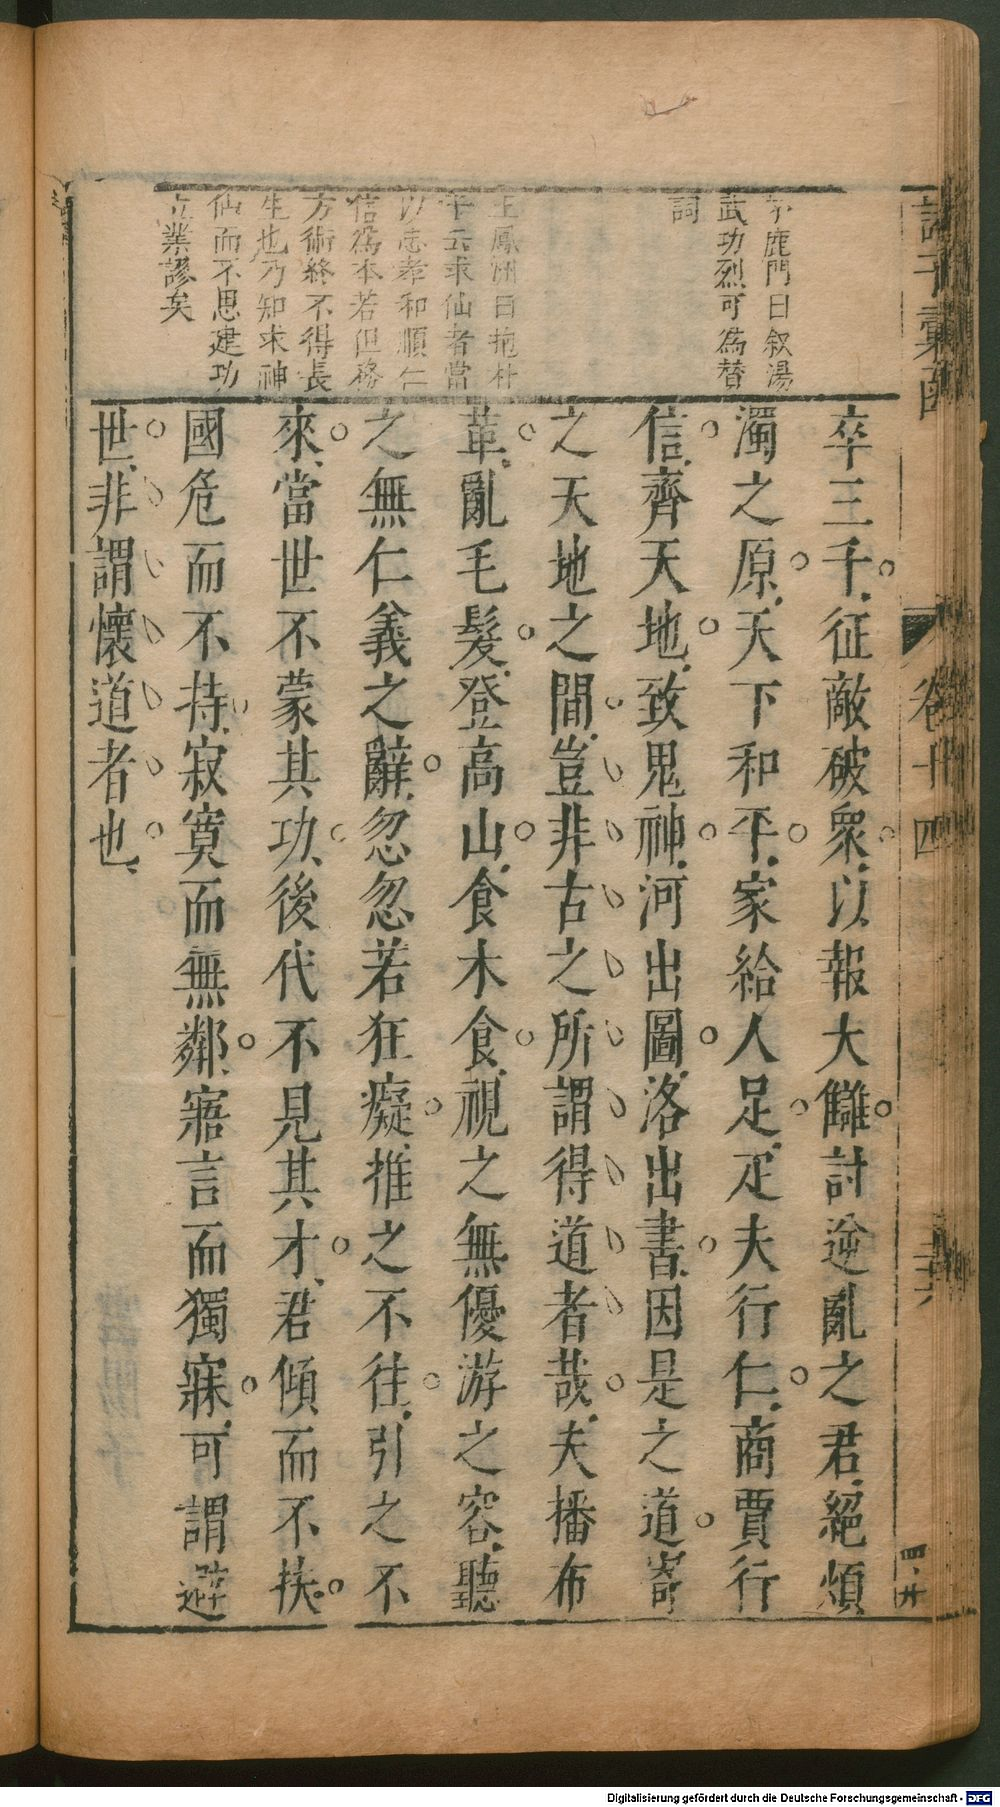 諸子彙函
卷十四
茅鹿門曰叙湯
武功烈可為替
詞
王鳳洲曰抱朴
子云求仙者當
以忠孝和順仁
信為本若但務
方術終不得長
生也乃知求神
仙而不思建功
立業謬矣
卒三千征敵破衆以報大讎討逆亂之君絕煩
濁之原天下和平家給人足疋夫行仁商賈行
信齊天地致鬼神河出圖洛出書因是之道寄
之天地之間豈非古之所謂得道者哉夫播布
革亂毛髮登高山食木食視之無優游之容聽
之無仁義之辭忽忽若狂癡推之不往引之不
來當世不蒙其功後代不見其才君傾而不扶
國危而不持寂寞而無鄰寤言而獨寐可謂避
世非謂懷道者也
Digitalisierung gefördert durch die Deutsche Forschungsgemeinschaft - DFG